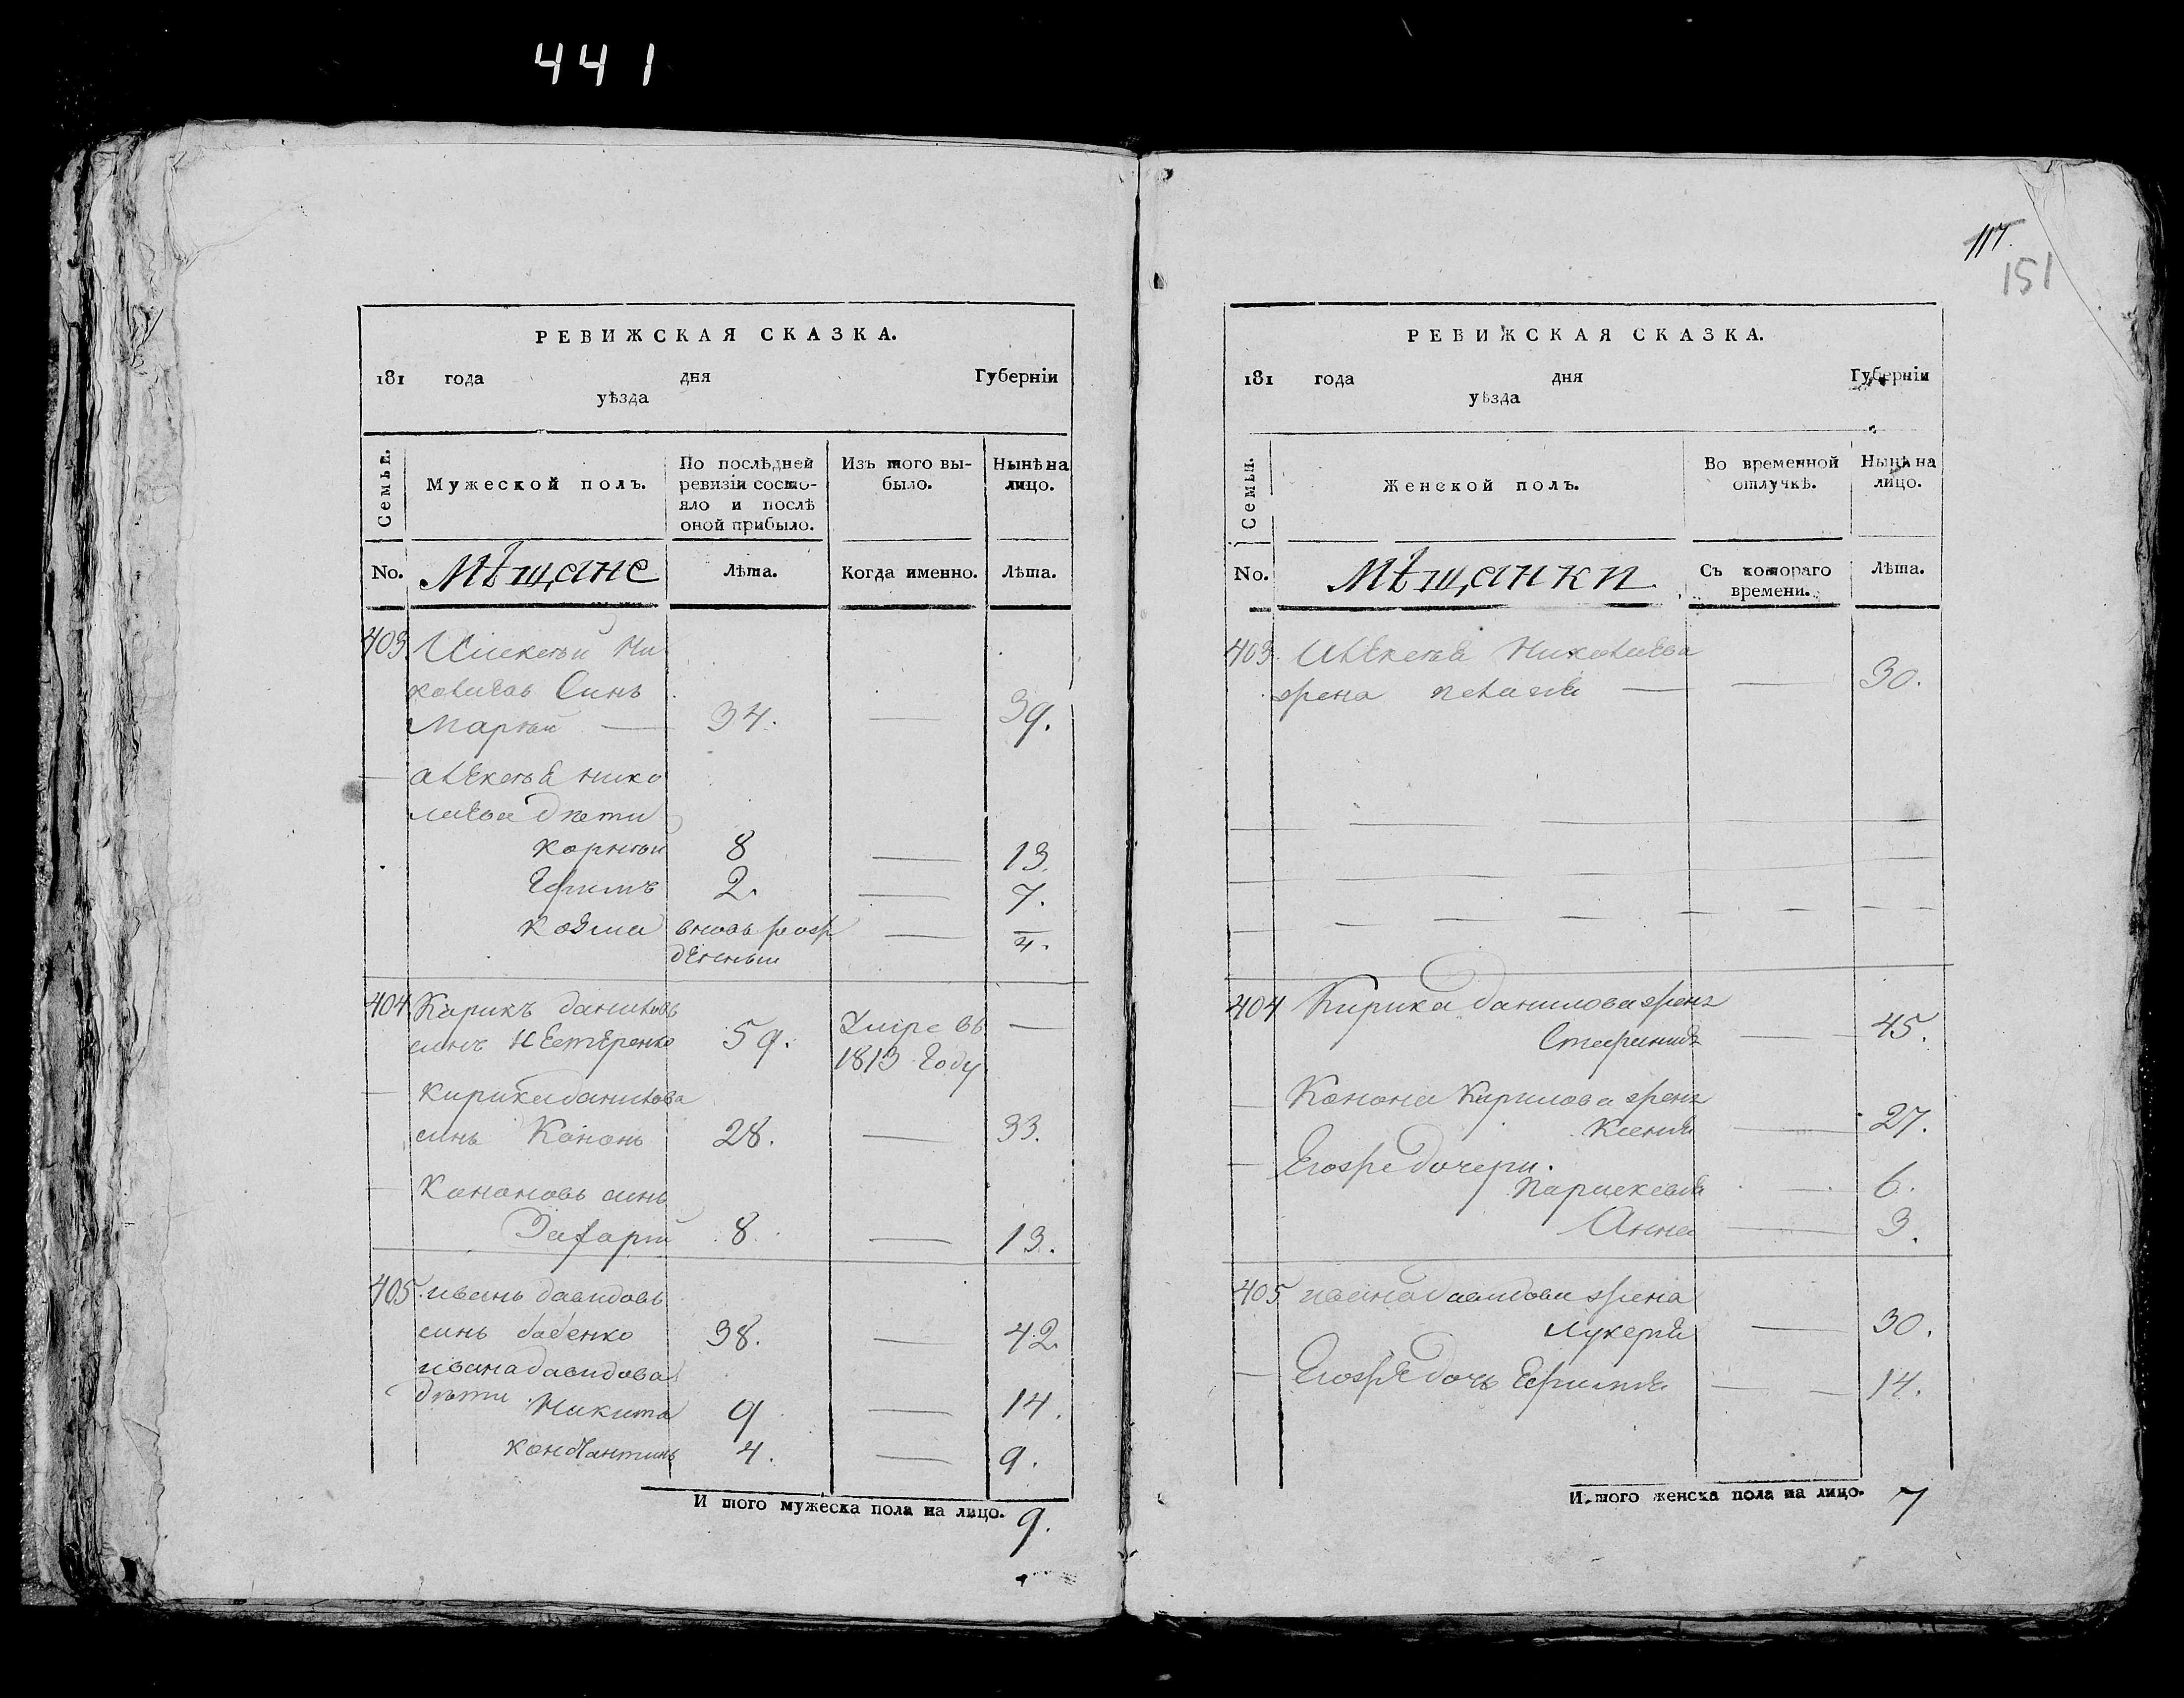 441
РЕВИЖСКАЯ СКАЗКА.
181 года дня Губернїи
уѣзда
Семьи.
Мужеской полъ.
По послѣдней ревизїи состояло и послѣ оной прибыло.
Изъ того выбыло.
Нынѣ на лицо.
No. Мѣщане Лѣта. Когда именно. Лѣта.
403. Алексѣй Ни
колаевъ Синъ
34. — 39.
— алексѣя нико
лаева дѣти
Корнѣй 8 — 13.
Ефимъ 2. — 7.
Козма вновь рож — 4.
денный
404 Кирикъ даниловъ
синъ Нестеренко 59. Умре въ —
1813 Году
— Кирика данилова
синъ Кононъ 28. — 33.
— Кононовъ синъ
8. — 13.
405. иванъ давидовъ
синъ бабенко 38. — 42.
ивана давидова
дѣти Никита 9 — 14.
константинъ 4. — 9.
И того мужеска пола на лицо. 9.
117.
151
РЕВИЖСКАЯ СКАЗКА.
181 года дня Губернїи
уѣзда
Семья.
Женской полъ.
Во временной отлучкѣ.
Нынѣ на лицо.
No. Мѣщанки Съ котораго времени. Лѣта.
403. Алексѣя Николаева
жена пелагея — — 30.
404 Кирика данилова жена
Стефанида — 45.
— Конона Кирилова жена
Ксения — 27.
— Егоже дочери.
Параскевия — 6.
Анна — 3.
405 ивана давидова жена
лукерия — 30.
— Егоже дочь Ефимия — 14.
И того женска пола на лицо. 7